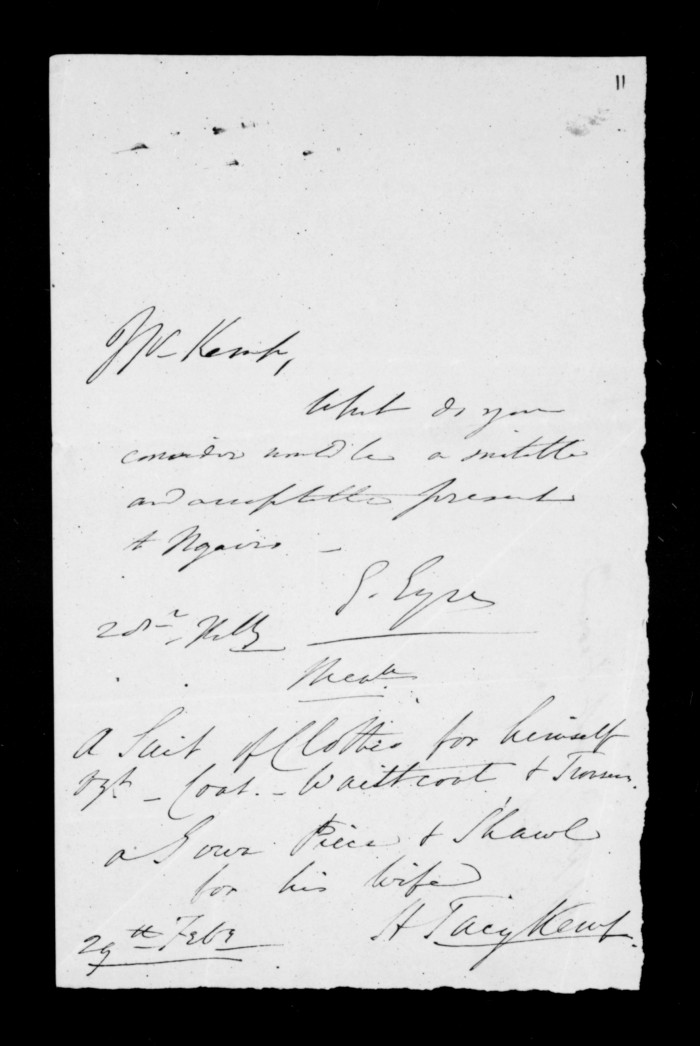 11
Mr Kemp,
What do you
consider would be a suitable
and acceptable present
to Ngairo -
E. Eyre
28th Feby
A Suit of Clothes for himself
Vzt - Coat - Waistcoat & Trousers.
a Gown Piece & Shawl
for his Wife
H Tacy Kemp.
29th Feby